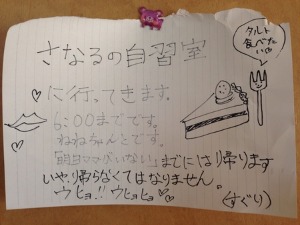 さなるの自習室
に行ってきます。
6:00までです。
ねねちゃんとこです。
「明日ママがいない」までには帰ります
いや、帰らなくてはなりません。
ウヒョ!! ウヒョヒョ
(すぐり)
タルト
食べた
い